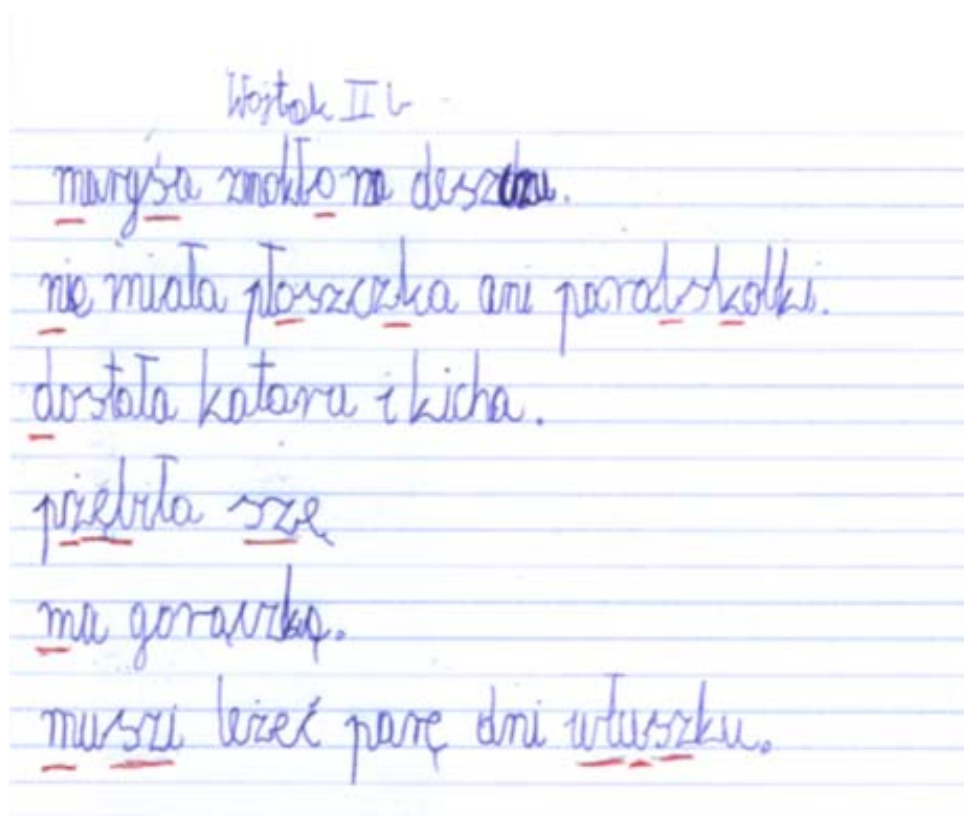 Wojtek II b
maryśa zmokło na deszczu.
nie miała płoszczka ani paralskolki.
dostała kataru i kicha.
pżębiła szę
ma gorączkę.
muszi leżeć parę dni włuszku.